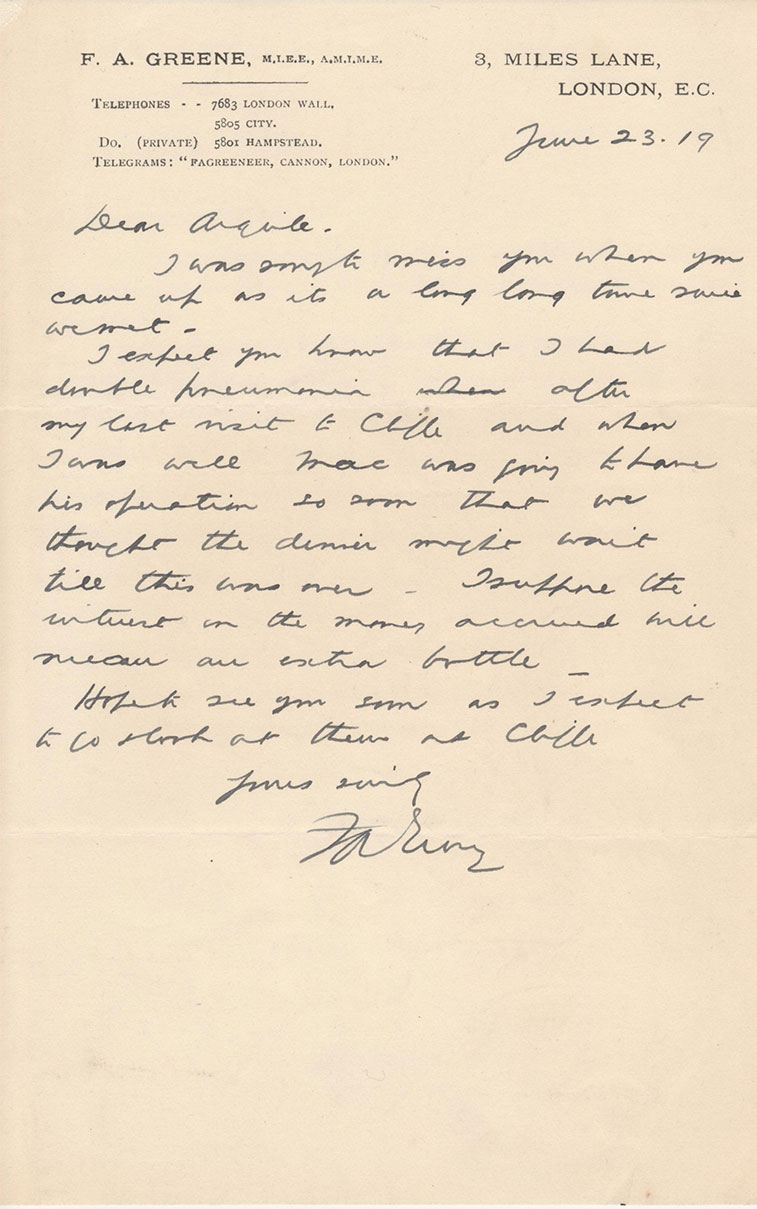 F. A. GREENE, M.I.E.E., A.M.I.M.E.
3, MILES LANE,
LONDON, E.C.
TELEPHONES - - 7683 LONDON WALL.
5805 CITY.
DO. (PRIVATE) 5801 HAMPSTEAD.
TELEGRAMS: "FAGREENEER, CANNON, LONDON."
June 23. 19
Dear Arguile.
I was sorry to miss you when you
came up as its a long long time since
we met -
I expect you know that I had
double pneumonia when after
my last visit to Cliffe and when
I was well Mac was going to have
his operation so soon that we
thought the dinner might wait
till this was over - I suppose the
interest on the money accrued will
mean an extra bottle -
Hope to see you soon as I expect
to go & look at them at Cliffe
Yours sincly
FA Greene